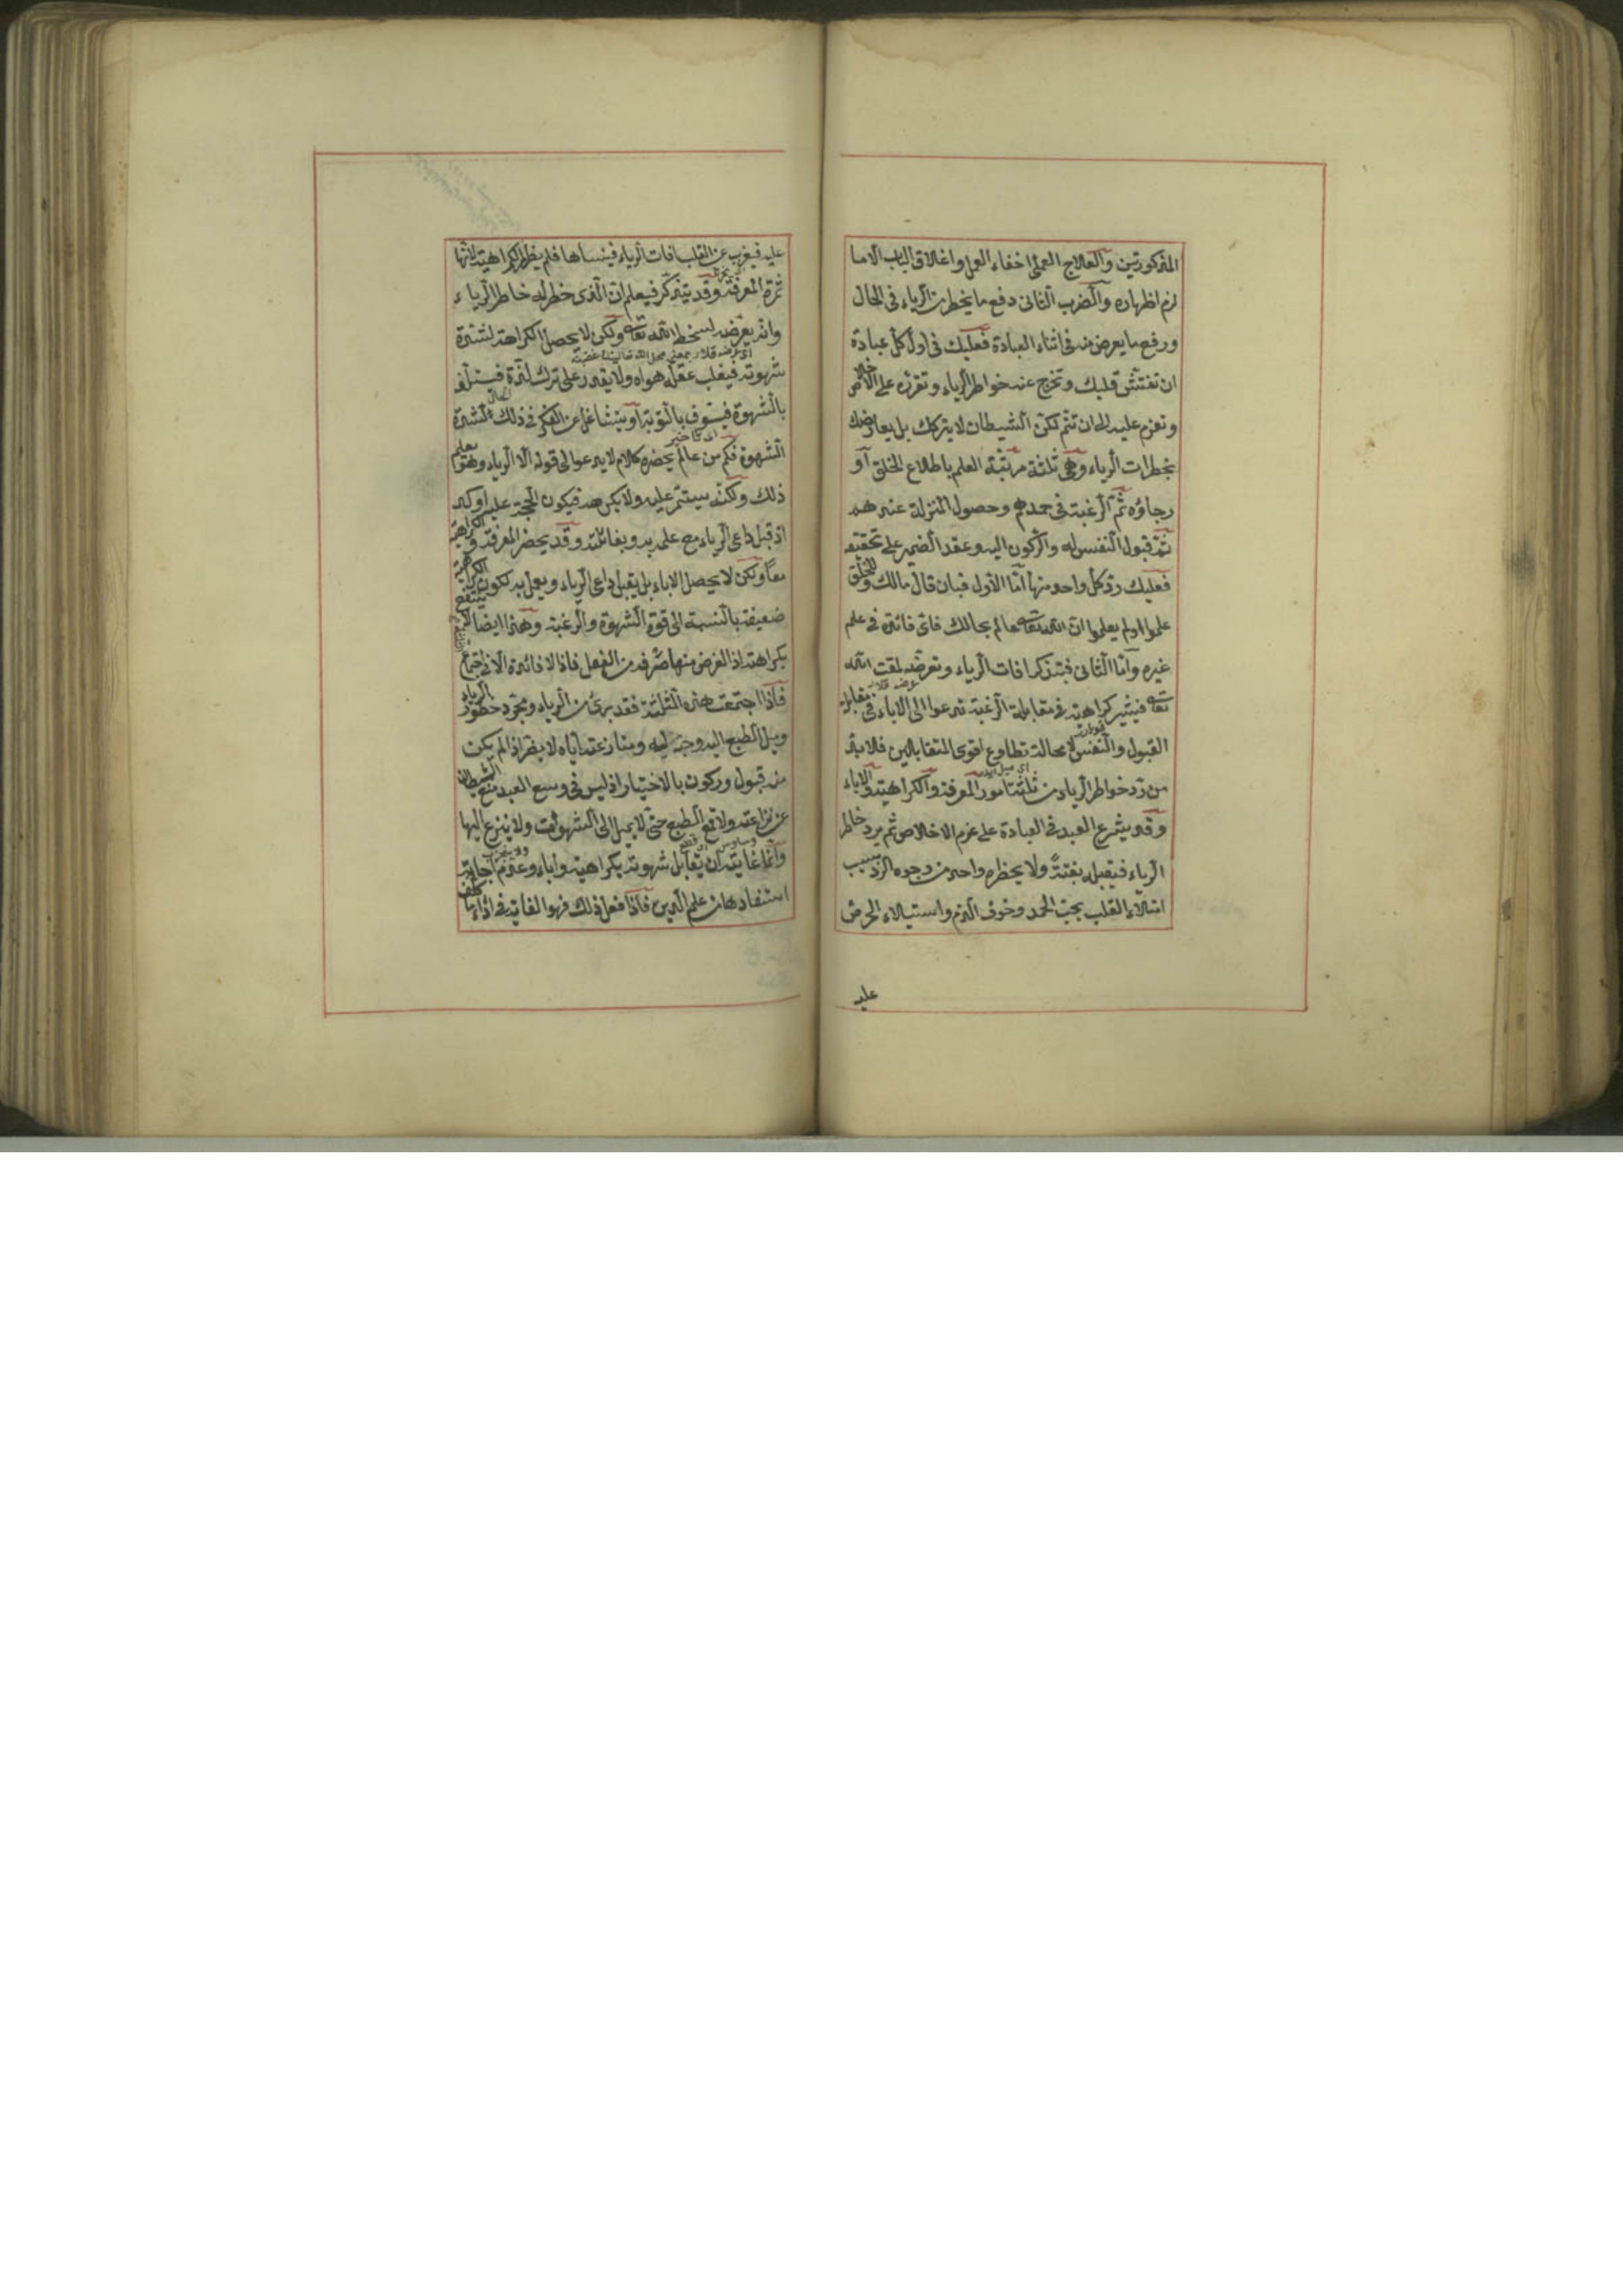 المذكورتين والعلاج العملى اخفاء العمل واغلاق الباب الا ما
لزم اظهاره والضرب الثانى دفع ما يخطر من الرياء فى الحال
ورفع ما يعرض منه فى اثناء العبادة فعليك فى اول كل عبادة
ان تفتش قلبك وتخرج عنه خواطر الرياء وتقرّه على الاخلاص
وتعزم عليه الى ان تتم لكن الشيطان لا يتركك بل يعارضك
بخطرات الرياء وهى ثلثة مرتبة العلم باطلاع الخلق او
رجاؤه ثم الرغبة فى حمدهم وحصول المنزلة عندهم
ثم قبول النفس له والركون اليه وعقد الضمير على تحقيقه
فعليك ردّ كل واحد منها امّا الاول فبان قال مالك وللخلق
علموا او لم يعلموا ان الله تعالى عالم بحالك فاىّ فائدة فى علم
غيره وامّا الثانى فبتذكر افات الرياء وتعرضه لمقت الله
تعالى فيثير كراهية فى مقابلة الرغبة تدعوا الى الاباء فى مقابلة
القبول والنفس لا محالة تطاوع اقوى المتقابلين فلا بدّ
من ردّ خواطر الرياء من ثلثة امور المعرفة والكراهية والاباء
وقد يشرع العبد فى العبادة على عزم الاخلاص ثم يرد خاطر
الرياء فيقبله بغتةً ولا يحظره واحد من وجوه الرد بسبب
امتلاء القلب بحبّ الحمد وخوف الذم واستيلاء الحرص
عليه
عليه فيغرب عن القلب افات الرياء فينساها فلم يظهر الكراهية لانها
ثمرة المعرفة وقد يتذكر فيعلم ان الذى خطر له خاطر الرياء
وانه يعرضه لسخط الله تعالى ولكن لا يحصل الكراهة لشدة
شهوته فيغلب عقله هواه ولا يقدر على ترك لذة فيستلذ
بالشهوة فيسوف بالتوبة او يتشاغل عن الفكر فى ذلك لشدة
اى تأخير
الشهوة فكم من عالم يحضره كلام لا يدعوا الى قوله الا الرياء وهو يعلم
ذلك ولكنّه يستمر عليه ولا يكرهه فيكون الحجة عليه اوكد
اذ قبل داعى الرياء مع علمه به وبغائلته وقد يحضر المعرفة والكراهة
معاً ولكن لا يحصل الاباء بل يقبل داعى الرياء ويعمل به لكون الكراهة
ضعيفة بالنسبة الى قوة الشهوة والرغبة وهذا ايضا لم ينتفع
بكراهته اذ الغرض منها صرفه من الفعل فاذا لا فائدة الا فى اجتماع
فاذا اجتمعت هذه الثلثة فقد برئ من الرياء ومجرد خطور الرياء
وميل الطبع اليه وحبّه ليه ومنازعته اياه لا يضر اذا لم يكن
منه قبول وركون بالاختيار اذ ليس فى وسع العبد منع الشيطان
عن نزاعته ولا قمع الطبع حتى لا يميل الى الشهوات ولا ينزع اليها
وانما غايته ان يقابل شهوته بكراهية واباء وعدم اجابة
استفادها من علم الدين فاذا فعل ذلك فهو الغاية فى اداء ما كلف